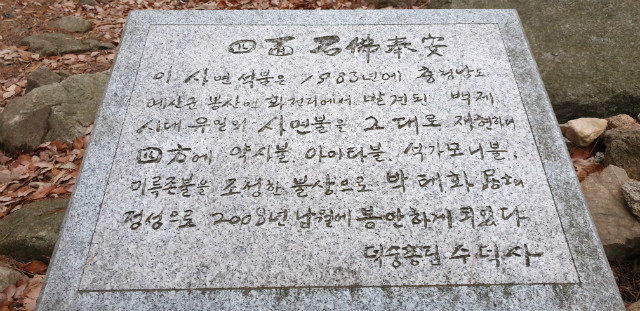 四面石佛奉安
이 사면석불은 1983년에 충청남도
예산군 봉산면 화전리에서 발견된 백제
시대 유일의 사면불을 그대로 재현하여
四方에 약사불, 아미타불, 석가모니불,
미륵존불을 조성한 불상으로 박태화 居士의
정성으로 2008년 납월에 봉안하게 되었다
덕숭총림 수덕사